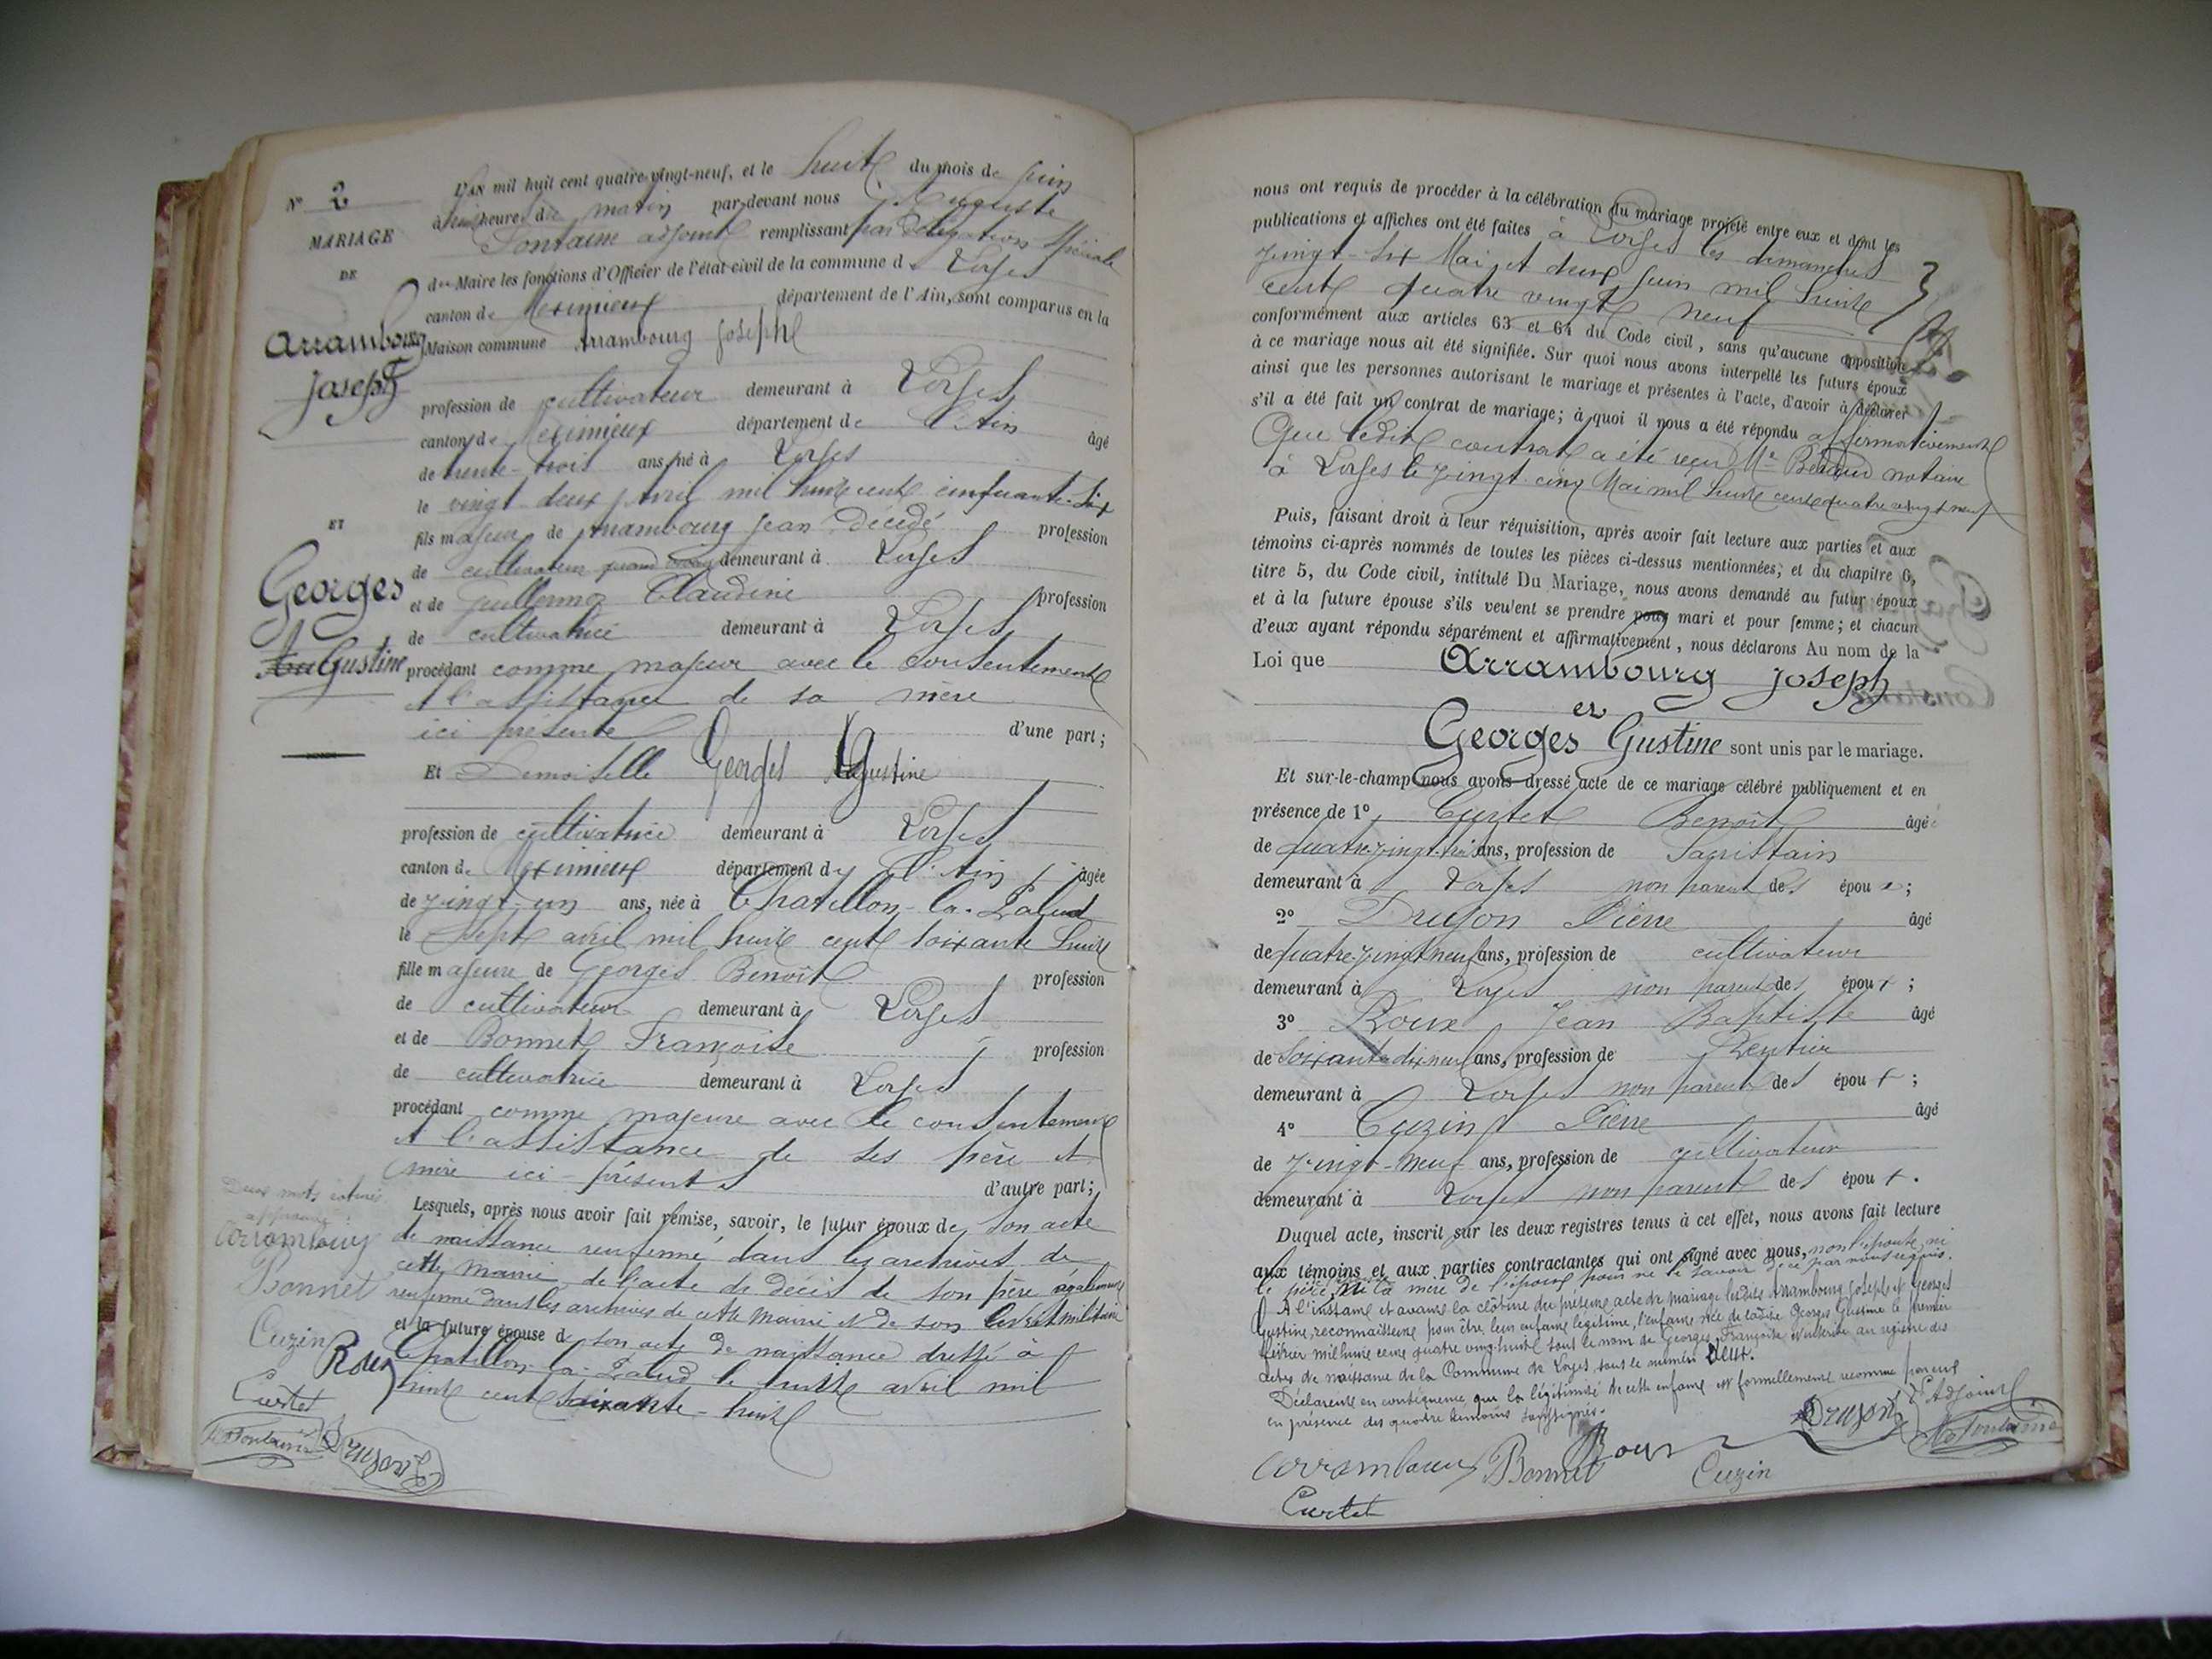 N° 2
MARIAGE
DE
Arrambourg
Joseph
ET
Georges
Gustine
L'AN mil huit cent quatre-vingt-neuf, et le huit du mois de juin
à huit heures du matin par-devant nous Auguste
Fontaine adjoint remplissant par délégation spéciale
du Maire les fonctions d'Officier de l'état-civil de la commune de Loyes
canton de Meximieux département de l'Ain, sont comparus en la
Maison commune Arrambourg Joseph
profession de cultivateur demeurant à Loyes
canton de Meximieux département de l'Ain âgé
de trente-trois ans, né à Loyes
le vingt deux avril mil huit cent cinquante-six
fils majeur de Arrambourg Jean Décédé profession
de cultivateur quand vivait demeurant à Loyes
et de Guillermoz Claudine profession
de cultivatrice demeurant à Loyes
procédant comme majeur avec le consentement
et l'assistance de sa mère
ici présente d'une part ;
Et Demoiselle Georges Gustine
profession de cultivatrice demeurant à Loyes
canton de Meximieux département de l'Ain âgée
de vingt-un ans, née à Chatillon-la-Palud
le sept avril mil huit cent soixante huit
fille majeure de Georges Benoît profession
de cultivateur demeurant à Loyes
et de Bonnet Françoise profession
de cultivatrice demeurant à Loyes
procédant comme majeure avec le consentement
et l'assistance de ses père et
mère ici-présents d'autre part ;
Lesquels, après nous avoir fait remise, savoir, le futur époux de son acte
de naissance renfermé dans les archives de
cette mairie, de l'acte de décès de son père également
renfermé dans les archives de cette mairie et de son livret militaire
et la future épouse de son acte de naissance dressé à
Chatillon-la-Palud le huit avril mil
huit cent soixante-huit
Deux mots
Arrambourg
Bonnet
Cuzin
Roux
Curtet
Fontaine
Druson
nous ont requis de procéder à la célébration du mariage projeté entre eux et dont les
publications et affiches ont été faites à Loyes les dimanches
vingt-six Mai et deux juin mil huit
cent quatre vingt neuf
conformément aux articles 63 et 64 du Code civil, sans qu'aucune opposition
à ce mariage nous ait été signifiée. Sur quoi nous avons interpellé les futurs époux
ainsi que les personnes autorisant le mariage et présentes à l'acte, d'avoir à déclarer
s'il a été fait un contrat de mariage ; à quoi il nous a été répondu affirmativement
Que ledit contrat a été reçu Me notaire
à Loyes le vingt-cinq Mai mil huit cent quatre vingt neuf
Puis, faisant droit à leur réquisition, après avoir fait lecture aux parties et aux
témoins ci-après nommés de toutes les pièces ci-dessus mentionnées, et du chapitre 6,
titre 5, du Code civil, intitulé Du Mariage, nous avons demandé au futur époux
et à la future épouse s'ils veulent se prendre pour mari et pour femme ; et chacun
d'eux ayant répondu séparément et affirmativement, nous déclarons Au nom de la
Loi que Arrambourg Joseph
et
Georges Gustine sont unis par le mariage.
Et sur-le-champ nous avons dressé acte de ce mariage célébré publiquement et en
présence de 1° Curtet Benoît âgé
de quatre-vingt-trois ans, profession de Sacristain
demeurant à Loyes non parent des époux ;
2° Druson Pierre âgé
de quatre-vingt neuf ans, profession de cultivateur
demeurant à Loyes non parent des époux ;
3° Roux Jean Baptiste âgé
de soixante dix neuf ans, profession de Rentier
demeurant à Loyes non parent des époux ;
4° Cuzin Pierre âgé
de vingt-neuf ans, profession de cultivateur
demeurant à Loyes non parent des époux.
Duquel acte, inscrit sur les deux registres tenus à cet effet, nous avons fait lecture
aux témoins et aux parties contractantes qui ont signé avec nous, non l'épouse, ni
le père, ni la mère de l'époux pour ne le savoir de ce par nous requis.
A l'instant et avant la clôture du présent acte de mariage lesdits Arrambourg Joseph et Georges
Gustine, reconnaissent pour être leur enfant légitime, l'enfant née de ladite Georges Gustine le premier
février mil huit cent quatre vingt huit sous le nom de Georges Françoise et inscrite au registre des
actes de naissance de la Commune de Loyes sous le numéro deux.
Déclarent en conséquence que la légitimité de cette enfant est formellement reconnue
en présence des quatre témoins soussignés.
L'Adjoint
Arrambourg Bonnet Roux Druson Fontaine
Cuzin
Curtet